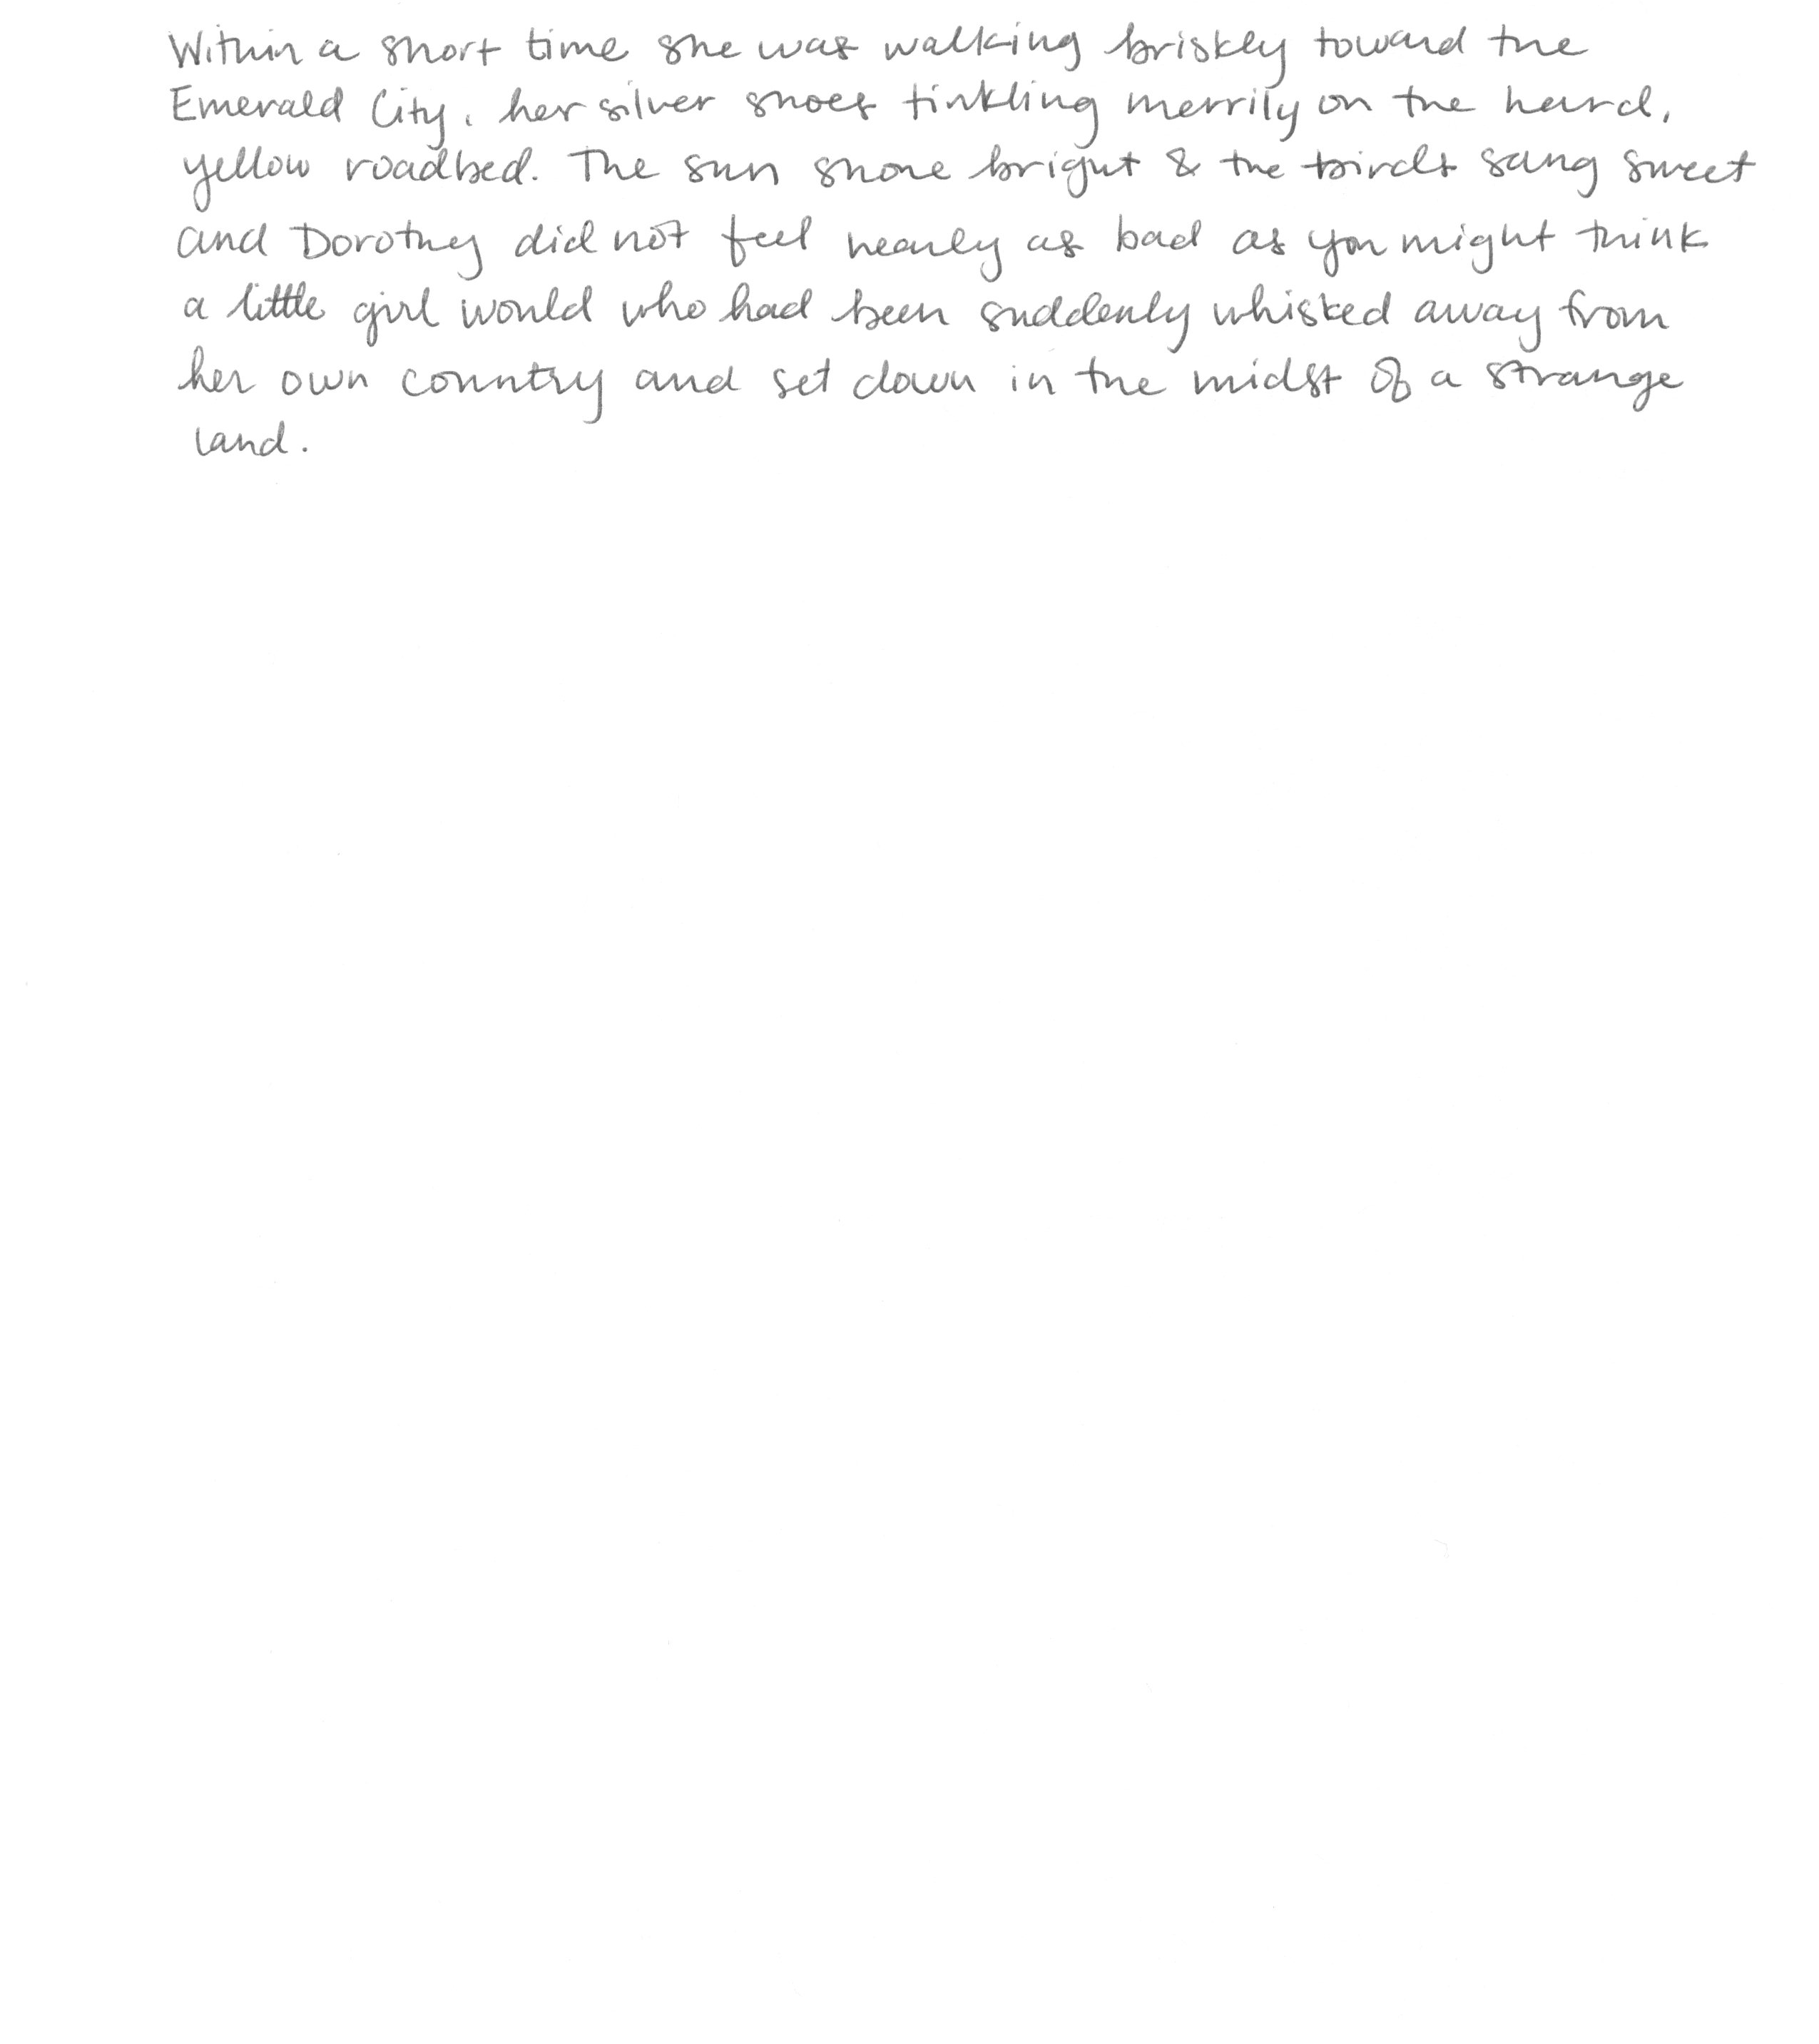 Within a short time she was walking briskly toward the
Emerald City, her silver shoes tinkling merrily on the hard,
yellow roadbed. The sun shone bright & the birds sang sweet
and Dorothy did not feel nearly as bad as you might think
a little girl would who had been suddenly whisked away from
her own country and set down in the midst of a strange
land.